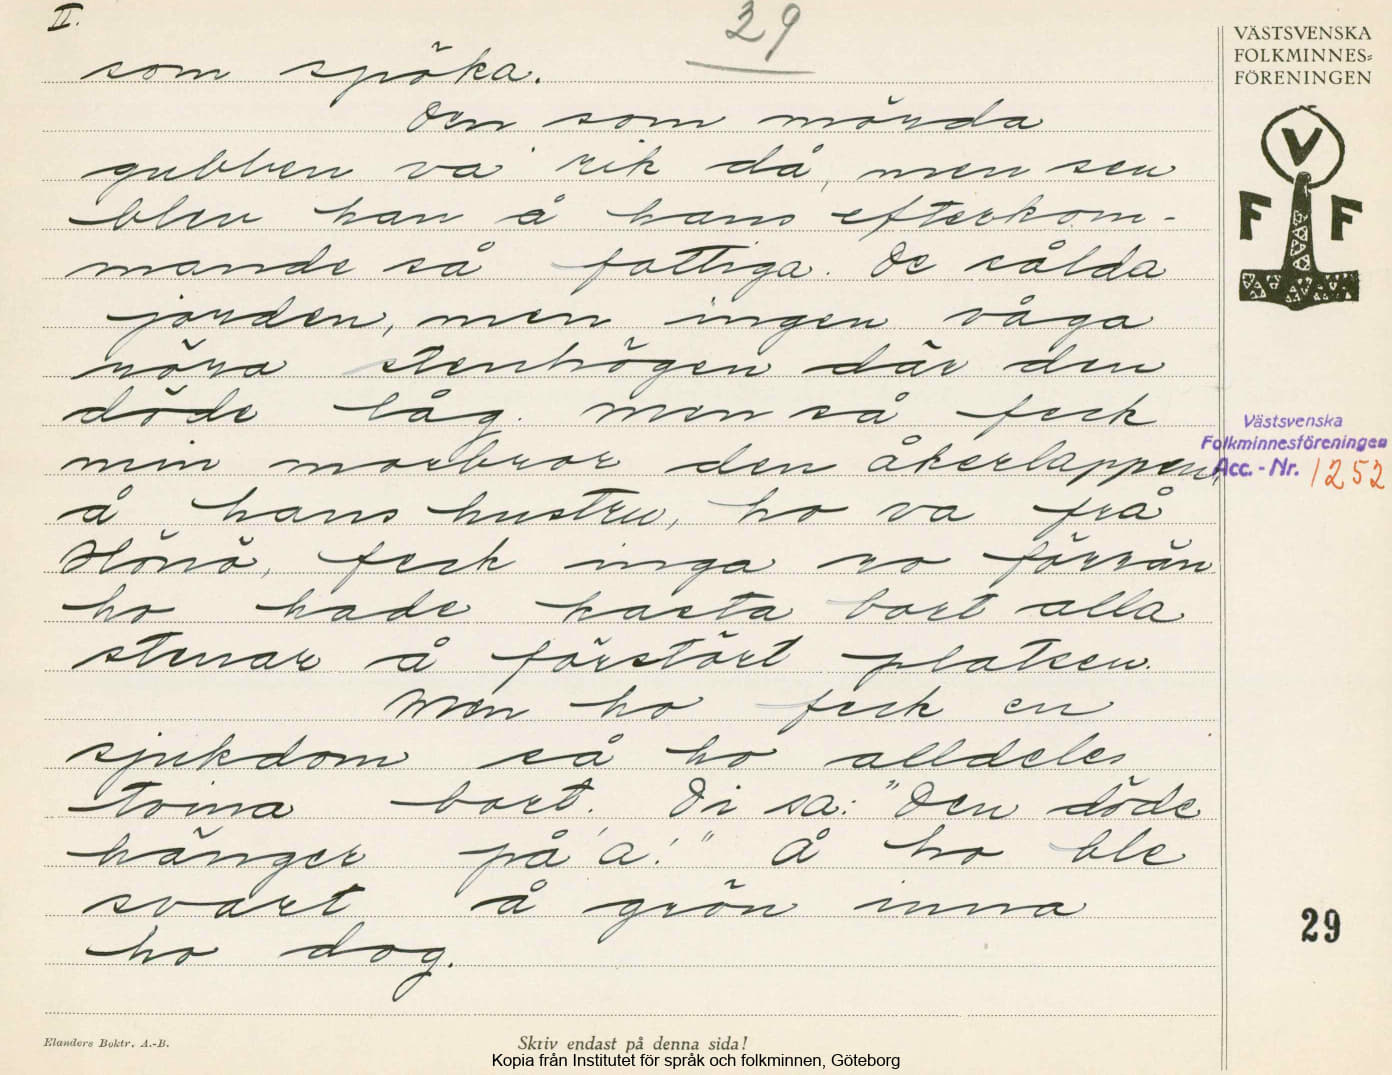 II.
39
VÄSTSVENSKA
FOLKMINNES=
FÖRENINGEN
V
F F
som spöka.
Den som mörda
gubben va rik då, men sen
blev han å hans efterkom-
mande så fattiga. De sålda
jorden, men ingen våga
röra stenhögen där den
döde låg. Men så feck
min morbror den åkerlappen,
å hans hustru, ho va frå
Hönö, feck inga ro förrän
ho hade kasta bort alla
stenar å förstört platsen.
Men ho feck en
sjukdom så ho alldeles
tvina bort. Di sa: "Den döde
hänger på 'a!" Å ho ble
svart å grön inna
ho dog.
Västsvenska
Folkminnesföreningen
Acc. - Nr. 1252
29
Elanders Boktr. A.-B.
Skriv endast på denna sida!
Kopia från Institutet för språk och folkminnen, Göteborg